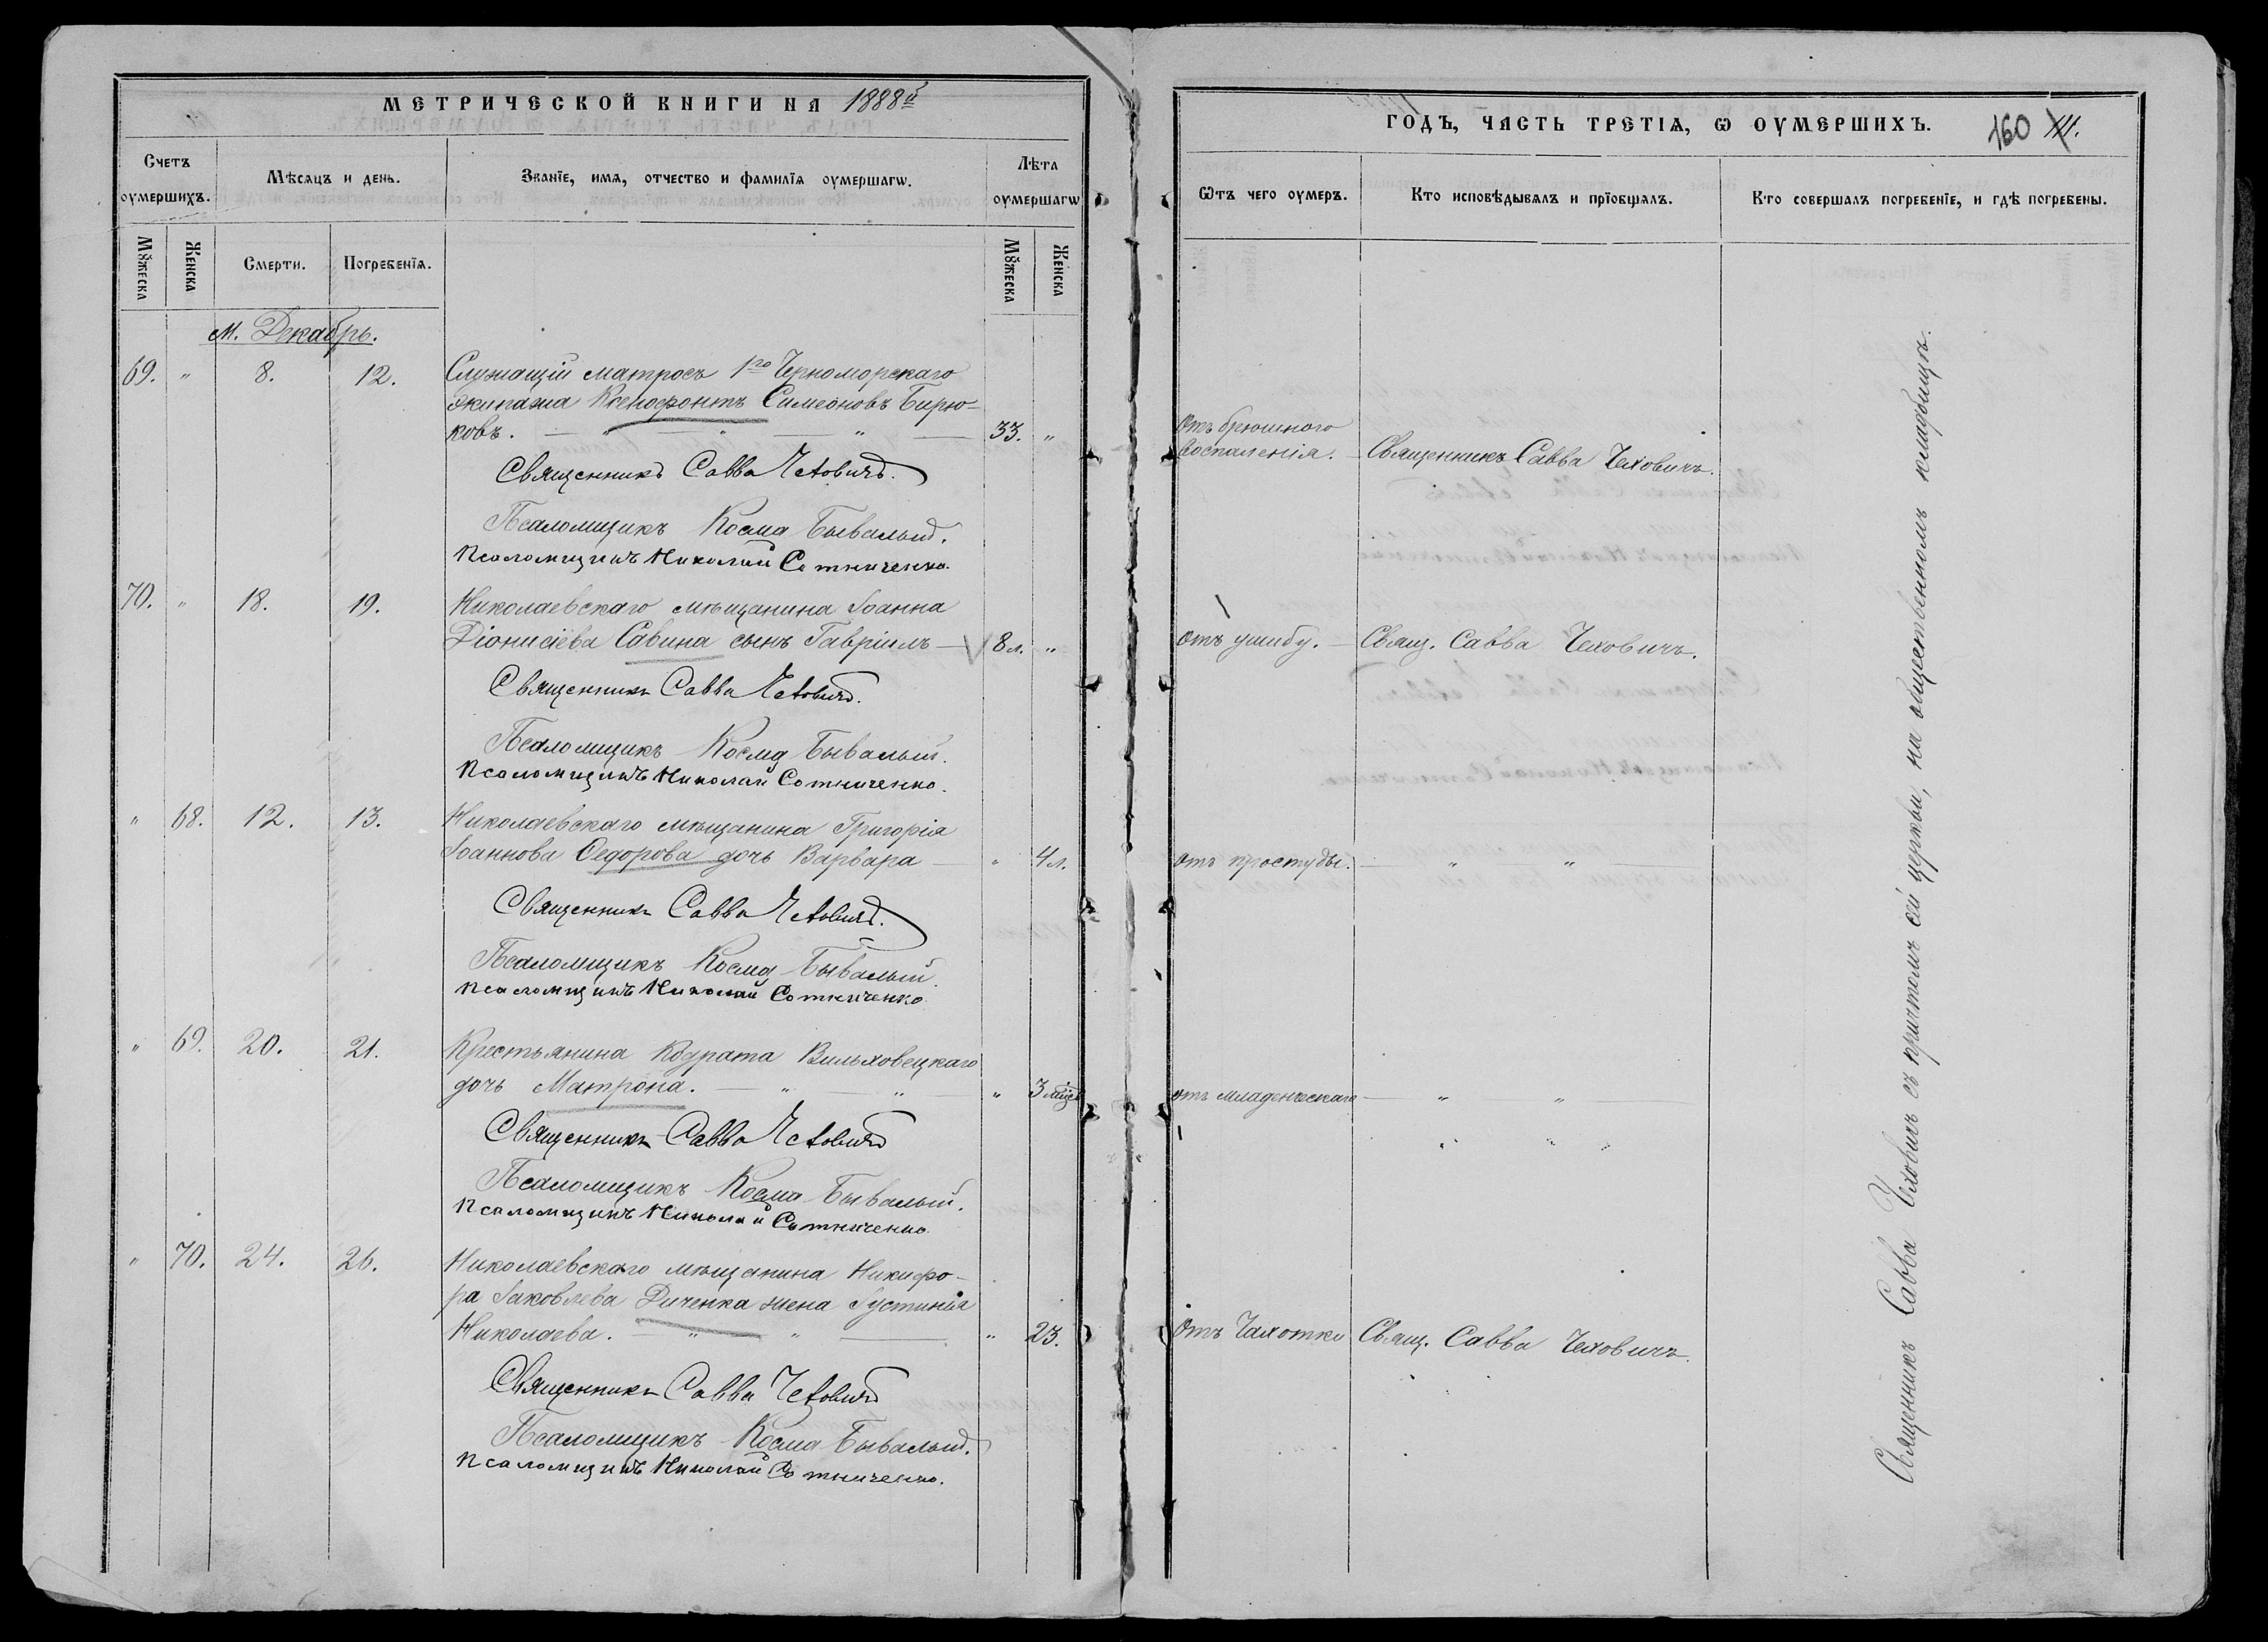 МЕТРИЧЕСКОЙ КНИГИ НА 1888й
Счетъ оумершихъ.
Мѣсяцъ и день.
Званїе, имя, отчество и фамилїя оумершагѡ.
Лѣта оумершагѡ
Мꙋжеска
Женска
Смерти.
Погребенїя.
Мꙋжеска
Женска
М. Декабрь.
69. " 8. 12. Служащій матросъ 1го Черноморскаго
экипажа Ксенофонтъ Симеоновъ Бирю-
ковъ. — " — " — 33. "
Священникъ Савва Чеховичъ.
Псаломщикъ Косма Бывалый.
Псаломщикъ Николай Сотниченко.
70. " 18. 19. Николаевскаго мѣщанина Іоанна
Діонисіева Савина сынъ Гавріилъ — 8 л. "
Священникъ Савва Чеховичъ.
Псаломщикъ Косма Бывалый.
Псаломщикъ Николай Сотниченко.
" 68. 12. 13. Николаевскаго мѣщанина Григорія
Іоаннова Ѳедорова дочь Варвара — " 4 л.
Священникъ Савва Чеховичъ.
Псаломщикъ Косма Бывалый.
Псаломщикъ Николай Сотниченко.
" 69. 20. 21. Крестьянина Кодрата Вильховецкаго
дочь Матрона. — " — " — " 3 мѣс.
Священникъ Савва Чеховичъ
Псаломщикъ Косма Бывалый.
Псаломщикъ Николай Сотниченко.
" 70. 24. 26. Николаевскаго мѣщанина Никифо-
ра Іаковлева Диченка жена Іустинія
Николаева. — " — " — " 23.
Священникъ Савва Чеховичъ
Псаломщикъ Косма Бывалый.
Псаломщикъ Николай Сотниченко.
ГОДЪ, ЧАСТЬ ТРЕТІѦ, Ѡ ОУМЕРШИХЪ. 160
Ѿтъ чего оумеръ.
Кто исповѣдывалъ и прїобщалъ.
Кто совершалъ погребенїе, и гдѣ погребены.
Отъ брюшного
воспаленія. — Священникъ Савва Чеховичъ.
отъ ушибу. — Свящ. Савва Чеховичъ.
отъ простуды. — " "
отъ младенческаго — " "
" " "
Отъ Чахотки Свящ. Савва Чеховичъ.
Священникъ Савва Чеховичъ съ причтомъ сей церкви, на общественномъ кладбищѣ.